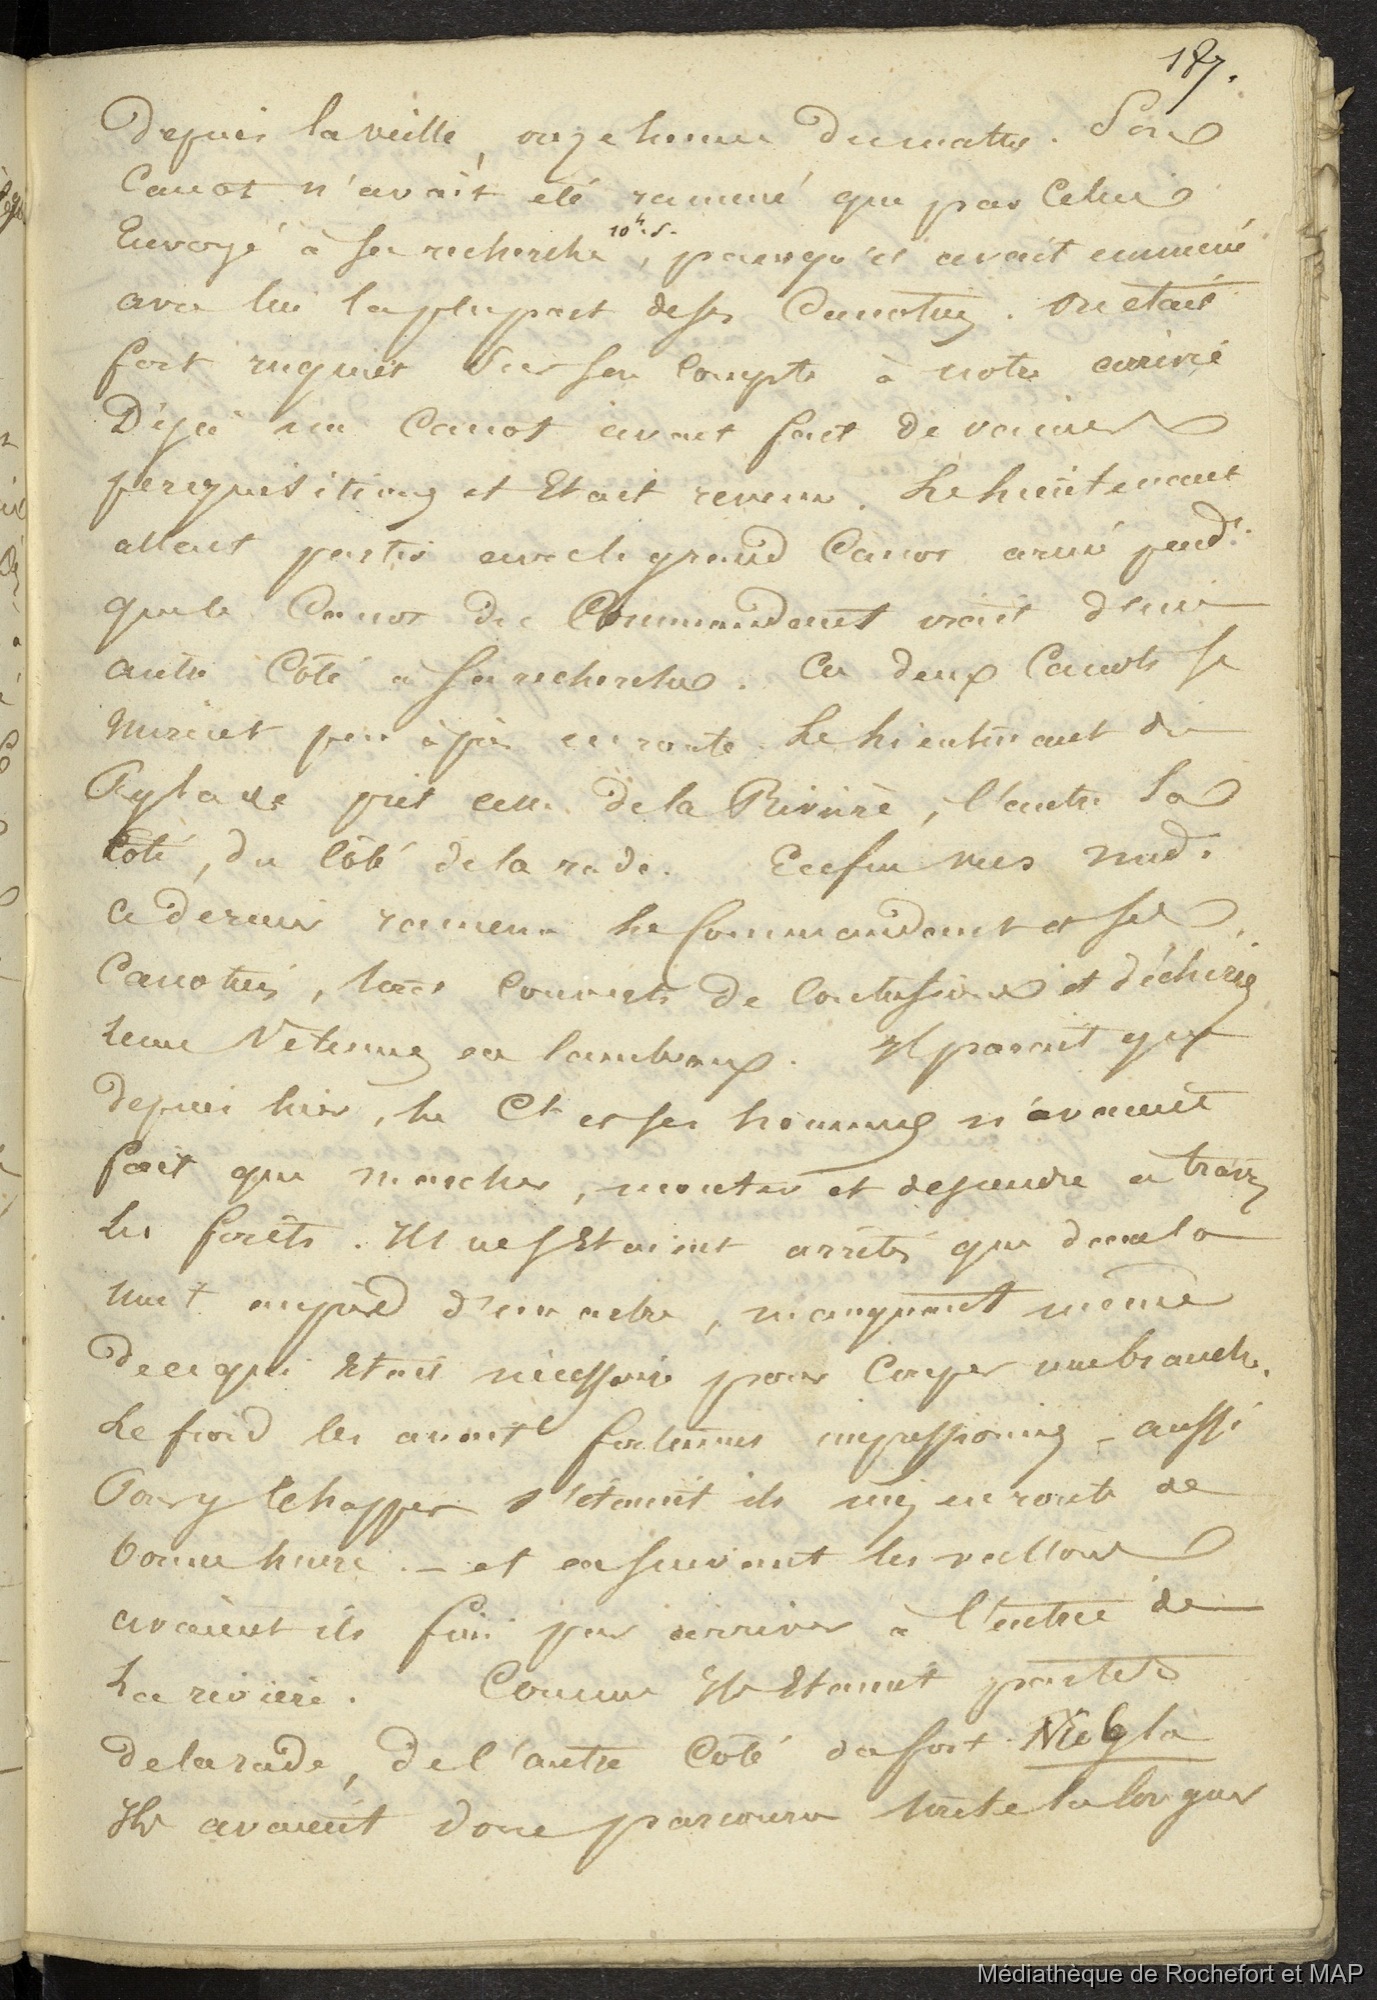 187.
Depuis la veille, onze heures du matin. Son
Canot n'avait été ramené que par Celui
Envoyé à sa recherche 10h. s., parcequ'il avait emmené
avec lui la plupart de ses Canotiers. On était
fort inquiet sur son compte à notre arrivée
Déjà un Canot avait fait de vaines
perquisitions et Etait revenu. Le lieutenant
allait partir avec le grand Canot armé pend.t
que le Canot du Commandant irait d'une
autre Côté à sa recherche. Ces deux Canots se
mirent peu après en route. Le lieutenant du
Pylade prit celle de la Rivière, l'autre la
Côte, du Côté de la rade. Enfin vers midi
Ce dernier ramena le Commandant et ses
Canotiers, tous couverts de Contusions et déchirés
leurs Vetemens en lambeaux. Il parait que
depuis hier, le Ct et ses hommes n'avaient
fait que marcher, monter et descendre à travers
les forêts. Ils ne s'Etaient arrêtés que dans la
nuit au pied d'un arbre, manquant même
de ce qui Etait nécessaire pour Couper une branche.
Le froid les avait fortement impressionnés – aussi
Pour y Echapper s'étaient ils mis en route de
bonne heure. – et en suivant les vallons
avaient ils fini par arriver à l'entrée de
La rivière. Comme Ils Etaient partis
de la rade, de l'autre Côté du fort Niebla
Ils avaient donc parcouru toute la longueur
Médiathèque de Rochefort et MAP